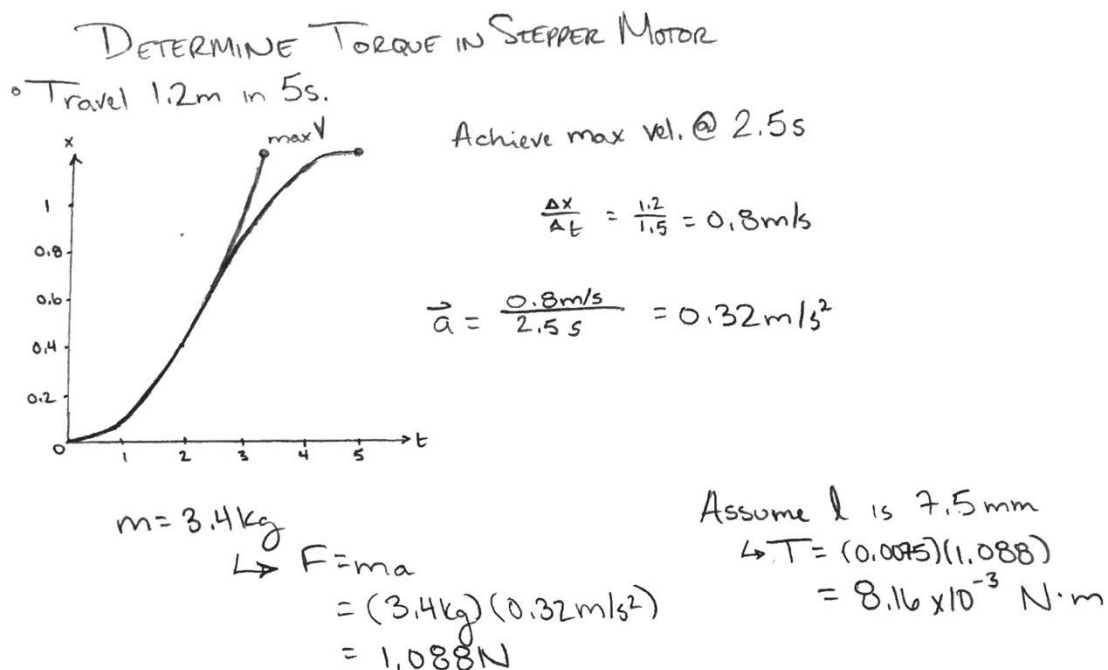 DETERMINE TORQUE IN STEPPER MOTOR
° Travel 1.2m in 5s.
x
max V
1
0.8
0.6
0.4
0.2
0
1 2 3 4 5
t
Achieve max vel. @ 2.5s
Δx/Δt = 1.2/1.5 = 0.8m/s
a⃗ = 0.8m/s / 2.5s = 0.32m/s²
m=3.4kg
↳ F=ma
= (3.4kg)(0.32m/s²)
= 1.088N
Assume l is 7.5mm
↳ T = (0.0075)(1.088)
= 8.16 x10⁻³ N·m